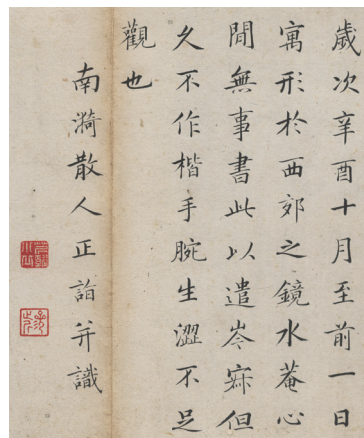 歲次辛酉十月至前一日
寓形於西郊之鏡水菴心
閒無事書此以遣岑寂但
久不作楷手腕生澀不足
觀也
南漪散人正詒并識